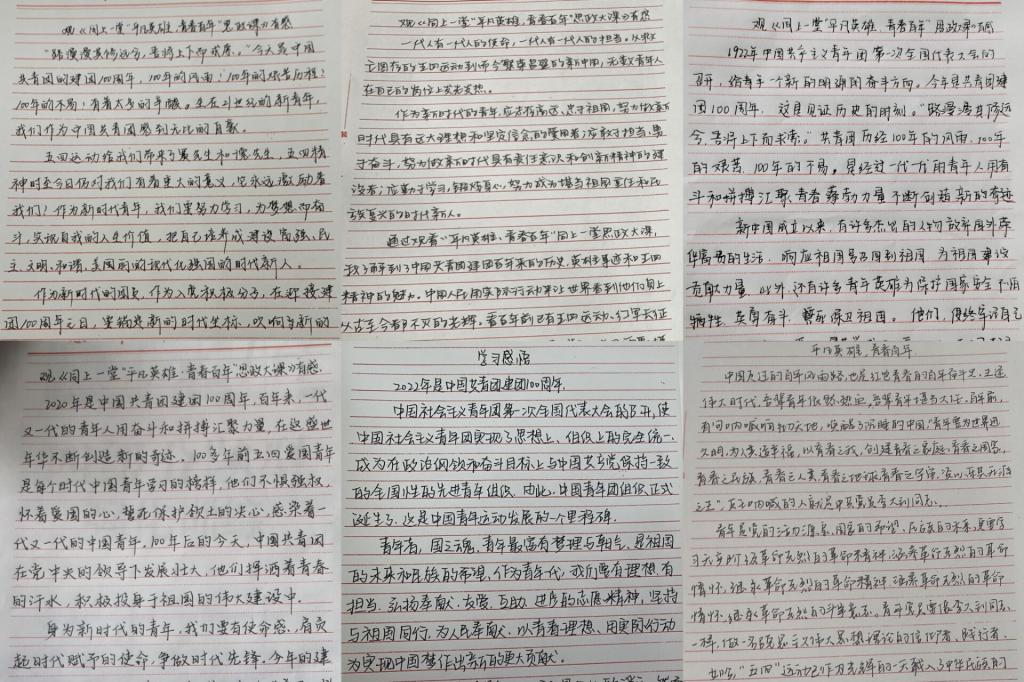 观《同上一堂"平凡英雄,青春百年"思政课》有感
"路漫漫其修远兮,吾将上下而求索。"今天是中国
共青团的建团100周年,100年的风雨!100年的艰苦历程!
100年的不易!有着太多的辛酸。生在21世纪的新青年,
我们作为中国共青团感到无比的自豪。
五四运动给我们带来了赛先生和德先生,五四精
神时至今日仍对我们有着重大的意义,它永远激励着
我们!作为新时代青年,我们要努力学习,为梦想而奋
斗,实现自我的人生价值,把自己培养成建设富强、民
主、文明、和谐、美丽的现代化强国的时代新人。
作为新时代的团员,作为入党积极分子,在迎接建
团100周年之日,要锚定新的时代坐标,吹响与新的
观《同上一堂"平凡英雄,青春百年"思政大课》有感
一代人有一代人的使命,一代人有一代人的担当。从救
亡图存的五四运动到而今繁荣昌盛的新中国,无数青年人
在自己的岗位上发光发热。
作为新时代的青年,应志存高远,忠于祖国,努力做新
时代具有远大理想和坚定信念的爱国者;应敢于担当,勇
于奋斗,努力做新时代具有责任意识和创新精神的建
设者;应勤于学习,锻炼身心,努力成为堪当祖国重任和民
族复兴的时代新人。
通过观看"平凡英雄、青春百年"同上一堂思政大课,
我了解到了中国共青团建团百年来的历史,英雄事迹和五四
精神的魅力。中国人民用实际行动来让世界看到他们身上
从古至今都不灭的光辉。看百年前已有五四运动、红军长征
观《同上一堂"平凡英雄,青春百年"思政课》有感
1922年中国共产主义青年团第一次全国代表大会的
召开,给青年一个新的明确的奋斗方向。今年是共青团建
团100周年,这是见证历史的时刻。"路漫漫其修远
兮,吾将上下而求索。"共青团历经100年的风雨,100年
的艰苦,100年的不易。是经过一代一代的青年人用奋
斗和拼搏汇聚青春蓬勃力量不断创造新的奇迹
新中国成立以来,有许多杰出的人物放弃国外奢
华富贵的生活,响应祖国号召回到祖国,为祖国建设
贡献力量。此外,还有许多青年英雄为保护国家安全不惜
牺牲,英勇奋斗,誓死保卫祖国。他们,便终等诗自己
观《同上一堂"平凡英雄·青春百年"思政大课》有感.
2020年是中国共青团建团100周年,百年来,一代
又一代的青年人用奋斗和拼搏汇聚力量,在这盛世
年华不断创造新的奇迹。100多年前五四爱国青年
是每个时代中国青年学习的榜样,他们不惧强权,
怀着爱国的心,誓死保护领土的决心,感染着一
代又一代的中国青年。100年后的今天,中国共青团
在党中央的领导下发展壮大,他们挥洒着青春
的汗水,积极投身于祖国的伟大建设中.
身为新时代的青年,我们要有使命感,肩负
起时代赋予的使命,争做时代先锋.今年的建
学习感悟
2022年是中国共青团建团100周年.
中国社会主义青年团第一次全国代表大会的召开,使
中国社会主义青年团实现了思想上、组织上的完全统一.
成为在政治纲领和奋斗目标上与中国共产党保持一致
的全国性的先进青年组织.由此,中国青年团组织正式
诞生了.这是中国青年运动发展的一个里程碑.
青年者,国之魂,青年最富有梦想与朝气,是祖国
的未来和民族的希望.作为青年一代,我们要有理想,有
担当,弘扬奉献、友爱、互助、进步的志愿精神,坚持
与祖国同行,为人民奉献.以青春理想、用实际行动
为实现中国梦作出新的更大贡献.
平凡英雄,青春百年.
中国走过的百年风雨路,也是红色青春的百年奋斗史.五途
伟大时代,吾辈青年依然热血,吾辈青年堪当大任.百年前,
有一句呐喊响彻天地,唤醒了沉睡的中国:"青年要为世界进
文明,为人类造幸福,以青春之我,创建青春之家庭,青春之国家,
青春之民族,青春之人类,青春之地球,青春之宇宙,资以乐其无涯
之生".发出呐喊的人就是中共党员李大钊同志.
青年是党的活力源泉,国家的希望,民族的未来,更要学
习无产阶级革命先烈的革命精神,涵养革命先烈的革命
情怀,继承革命先烈的革命精神,涵养革命先烈的革命
情怀,继承革命先烈的斗争意志.青年党员要像李大钊同志
一样,做一名马克思主义伟大思想理论的信仰者、践行者.
如今,"五四"运动已作为光辉的一天载入了中华民族的